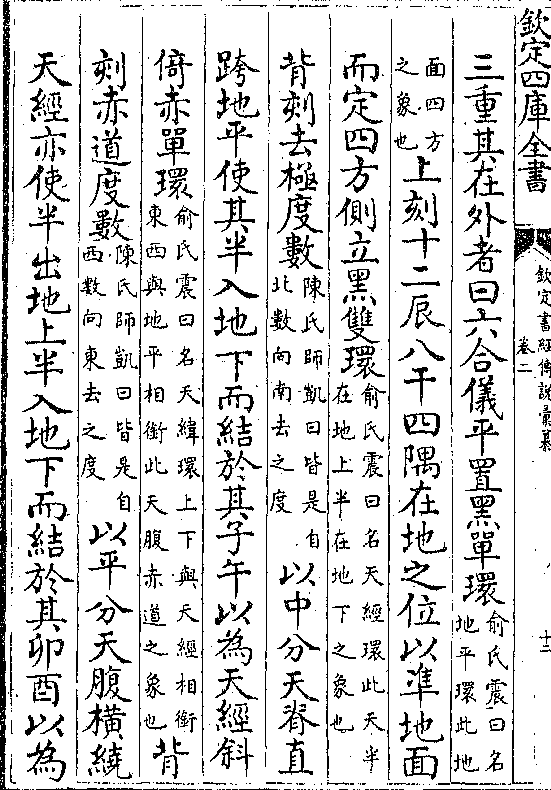 欽定四庫全書
欽定書經傳說彙纂
卷二
十二
三重其在外者曰六合儀平置黑單環俞氏震曰名地平環此地
面四方之象也上刻十二辰八干四隅在地之位以準地面
而定四方側立黑雙環俞氏震曰名天經環此天半在地上半在地下之象也
背刻去極度數陳氏師凱曰皆是自北數向南去之度以中分天脊直
跨地平使其半入地下而結於其子午以為天經斜
倚赤單環俞氏震曰名天緯環上下與天經相銜東西與地平相銜此天腹赤道之象也背
刻赤道度數陳氏師凱曰皆是自西數向東去之度以平分天腹橫繞
天經亦使半出地上半入地下而結於其卯酉以為